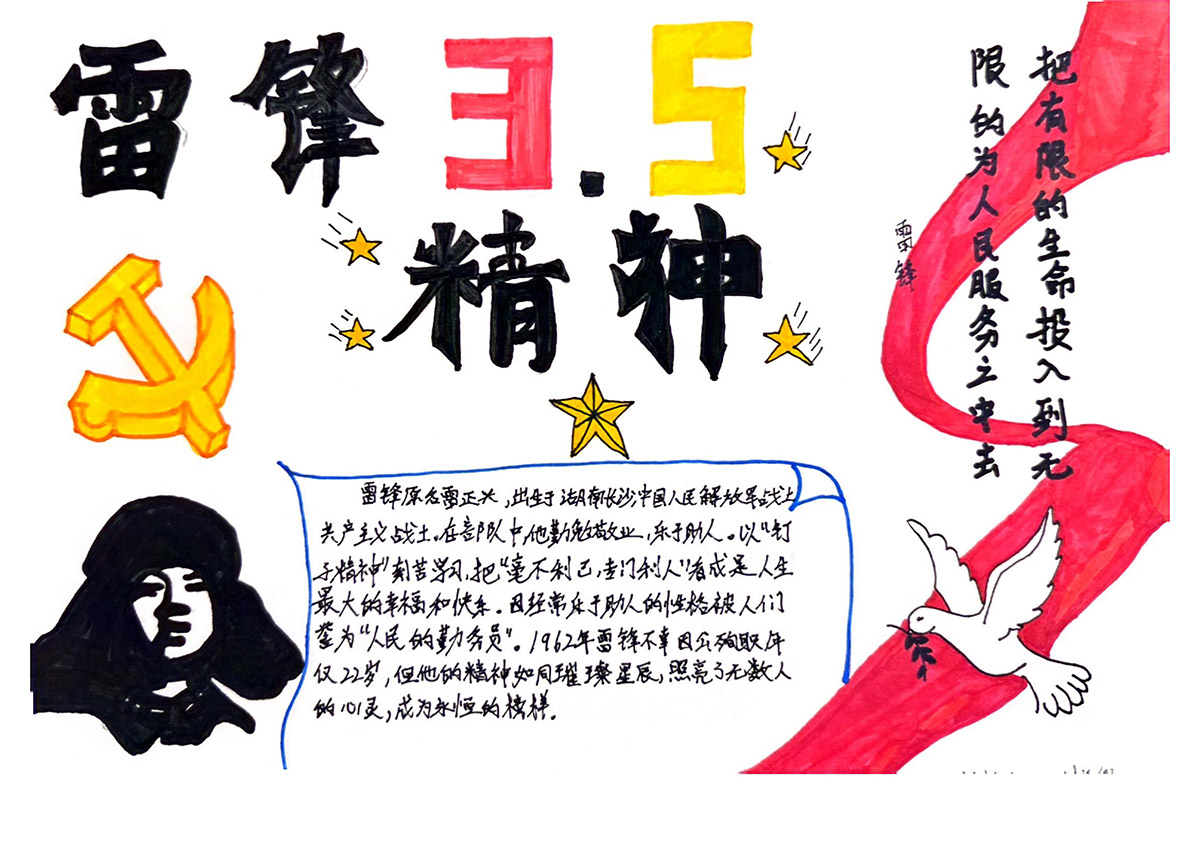 雷锋 3.5
精神
把有限的生命投入到无
限的为人民服务之中去
雷锋
雷锋原名雷正兴，出生于湖南长沙中国人民解放军战士
共产主义战士。在部队中，他勤勉敬业，乐于助人。以“钉
子精神”刻苦学习，把“毫不利己，专门利人”看成是人生
最大的幸福和快乐。因经常乐于助人的性格被人们
誉为“人民的勤务员”。1962年雷锋不幸因公殉职年
仅22岁，但他的精神如同璀璨星辰，照亮了无数人
的心灵，成为永恒的榜样。